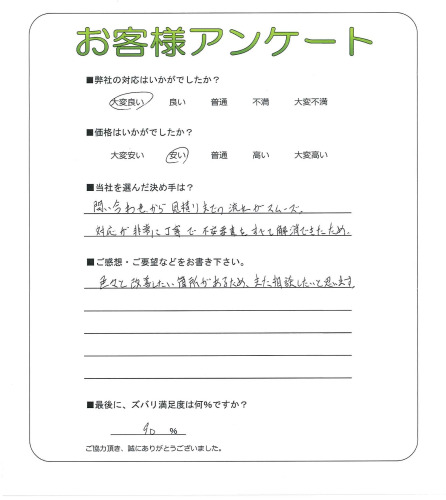 お客様アンケート
■弊社の対応はいかがでしたか?
大変良い 良い 普通 不満 大変不満
■価格はいかがでしたか?
大変安い 安い 普通 高い 大変高い
■当社を選んだ決め手は?
問い合わせから見積りまでの流れがスムーズ。
対応が非常に丁寧で不安要素をすべて解消できたため。
■ご感想・ご要望などをお書き下さい。
色々と改善したい箇所があるため、また相談したいと思います
■最後に、ズバリ満足度は何%ですか?
90 %
ご協力頂き、誠にありがとうございました。